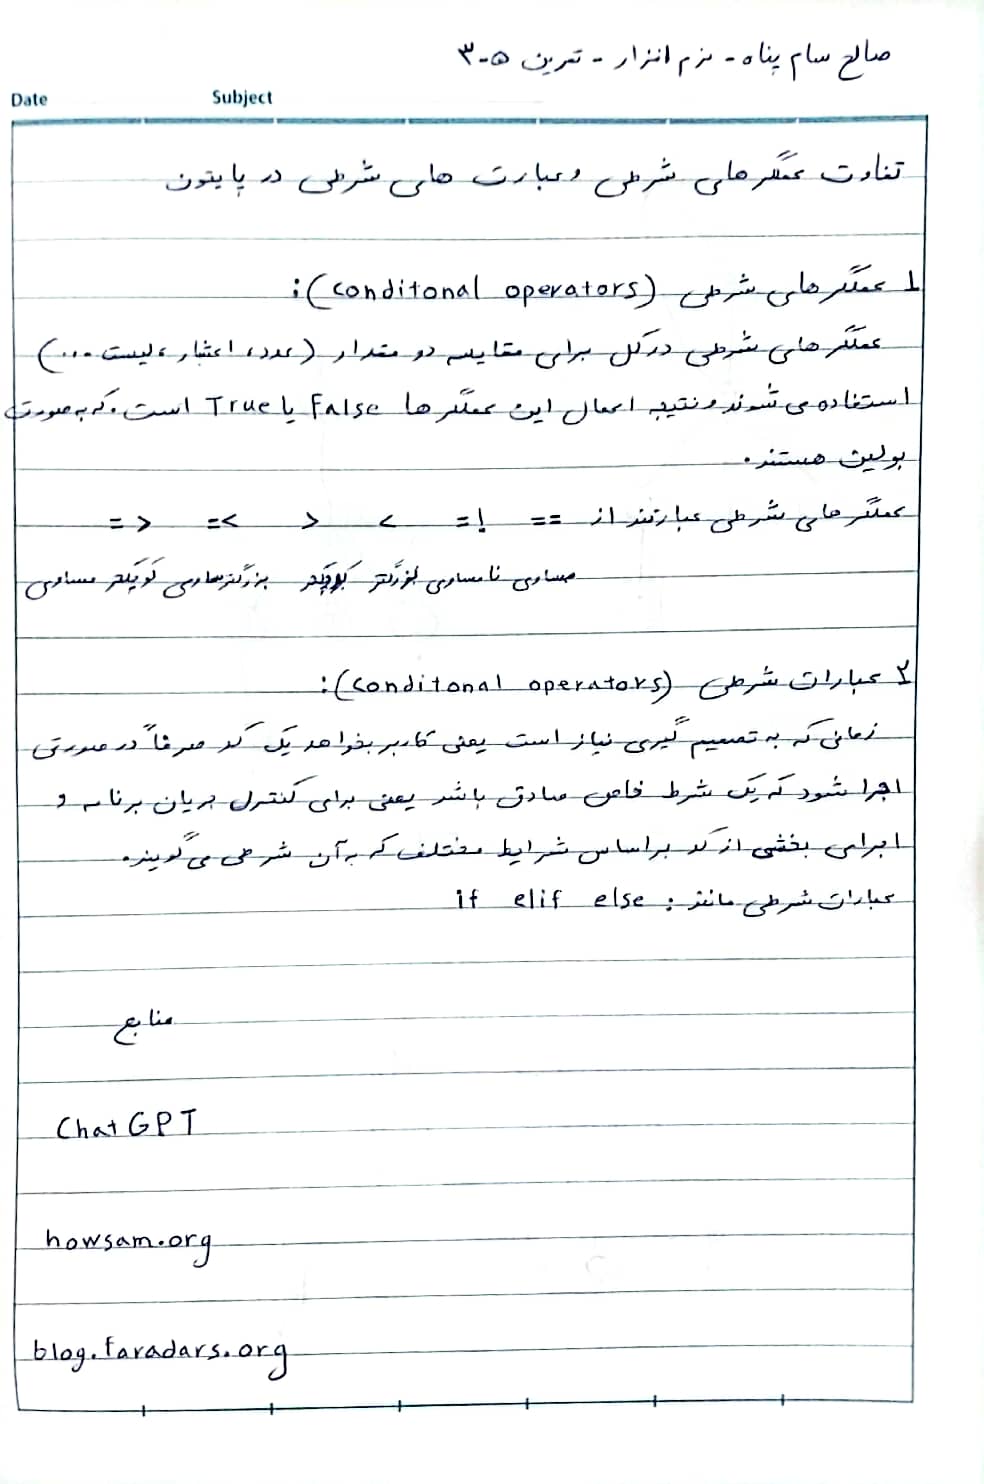 صالح سام پناه - نرم افزار - تمرین ۵-۳
Date Subject
تفاوت عملگرهای شرطی و عبارت های شرطی در پایتون
۱ عملگرهای شرطی (conditonal operators):
عملگرهای شرطی در کل برای مقایسه دو مقدار (عدد، اعشار، لیست ...)
استفاده می شوند و نتیجه اعمال این عملگرها False یا True است. که به صورت
بولین هستند.
عملگرهای شرطی عبارتند از == != > < >= <=
مساوی نامساوی بزرگتر کوچکتر بزرگتر مساوی کوچکتر مساوی
۲ عبارات شرطی (conditonal operators):
زمانی که به تصمیم گیری نیاز است یعنی کاربر بخواهد یک کد صرفاً در صورتی
اجرا شود که یک شرط خاص صادق باشد یعنی برای کنترل جریان برنامه و
اجرای بخشی از کد براساس شرایط مختلف که به آن شرطی می گویند.
عبارات شرطی مانند : if elif else
منابع
ChatGPT
howsam.org
blog.faradars.org